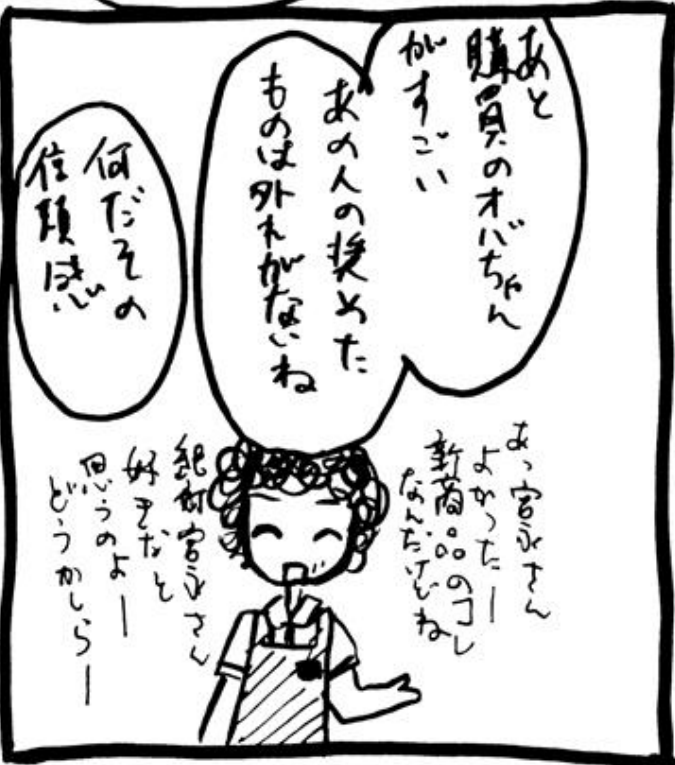 あと
購買のオバちゃん
がすごい
あの人の奨めた
ものは外れがないね
何だその
信頼感
あっ宮永さん
よかったー
新商品のコレ
なんだけどね
絶対宮永さん
好きだと
思うのよー
どうかしらー